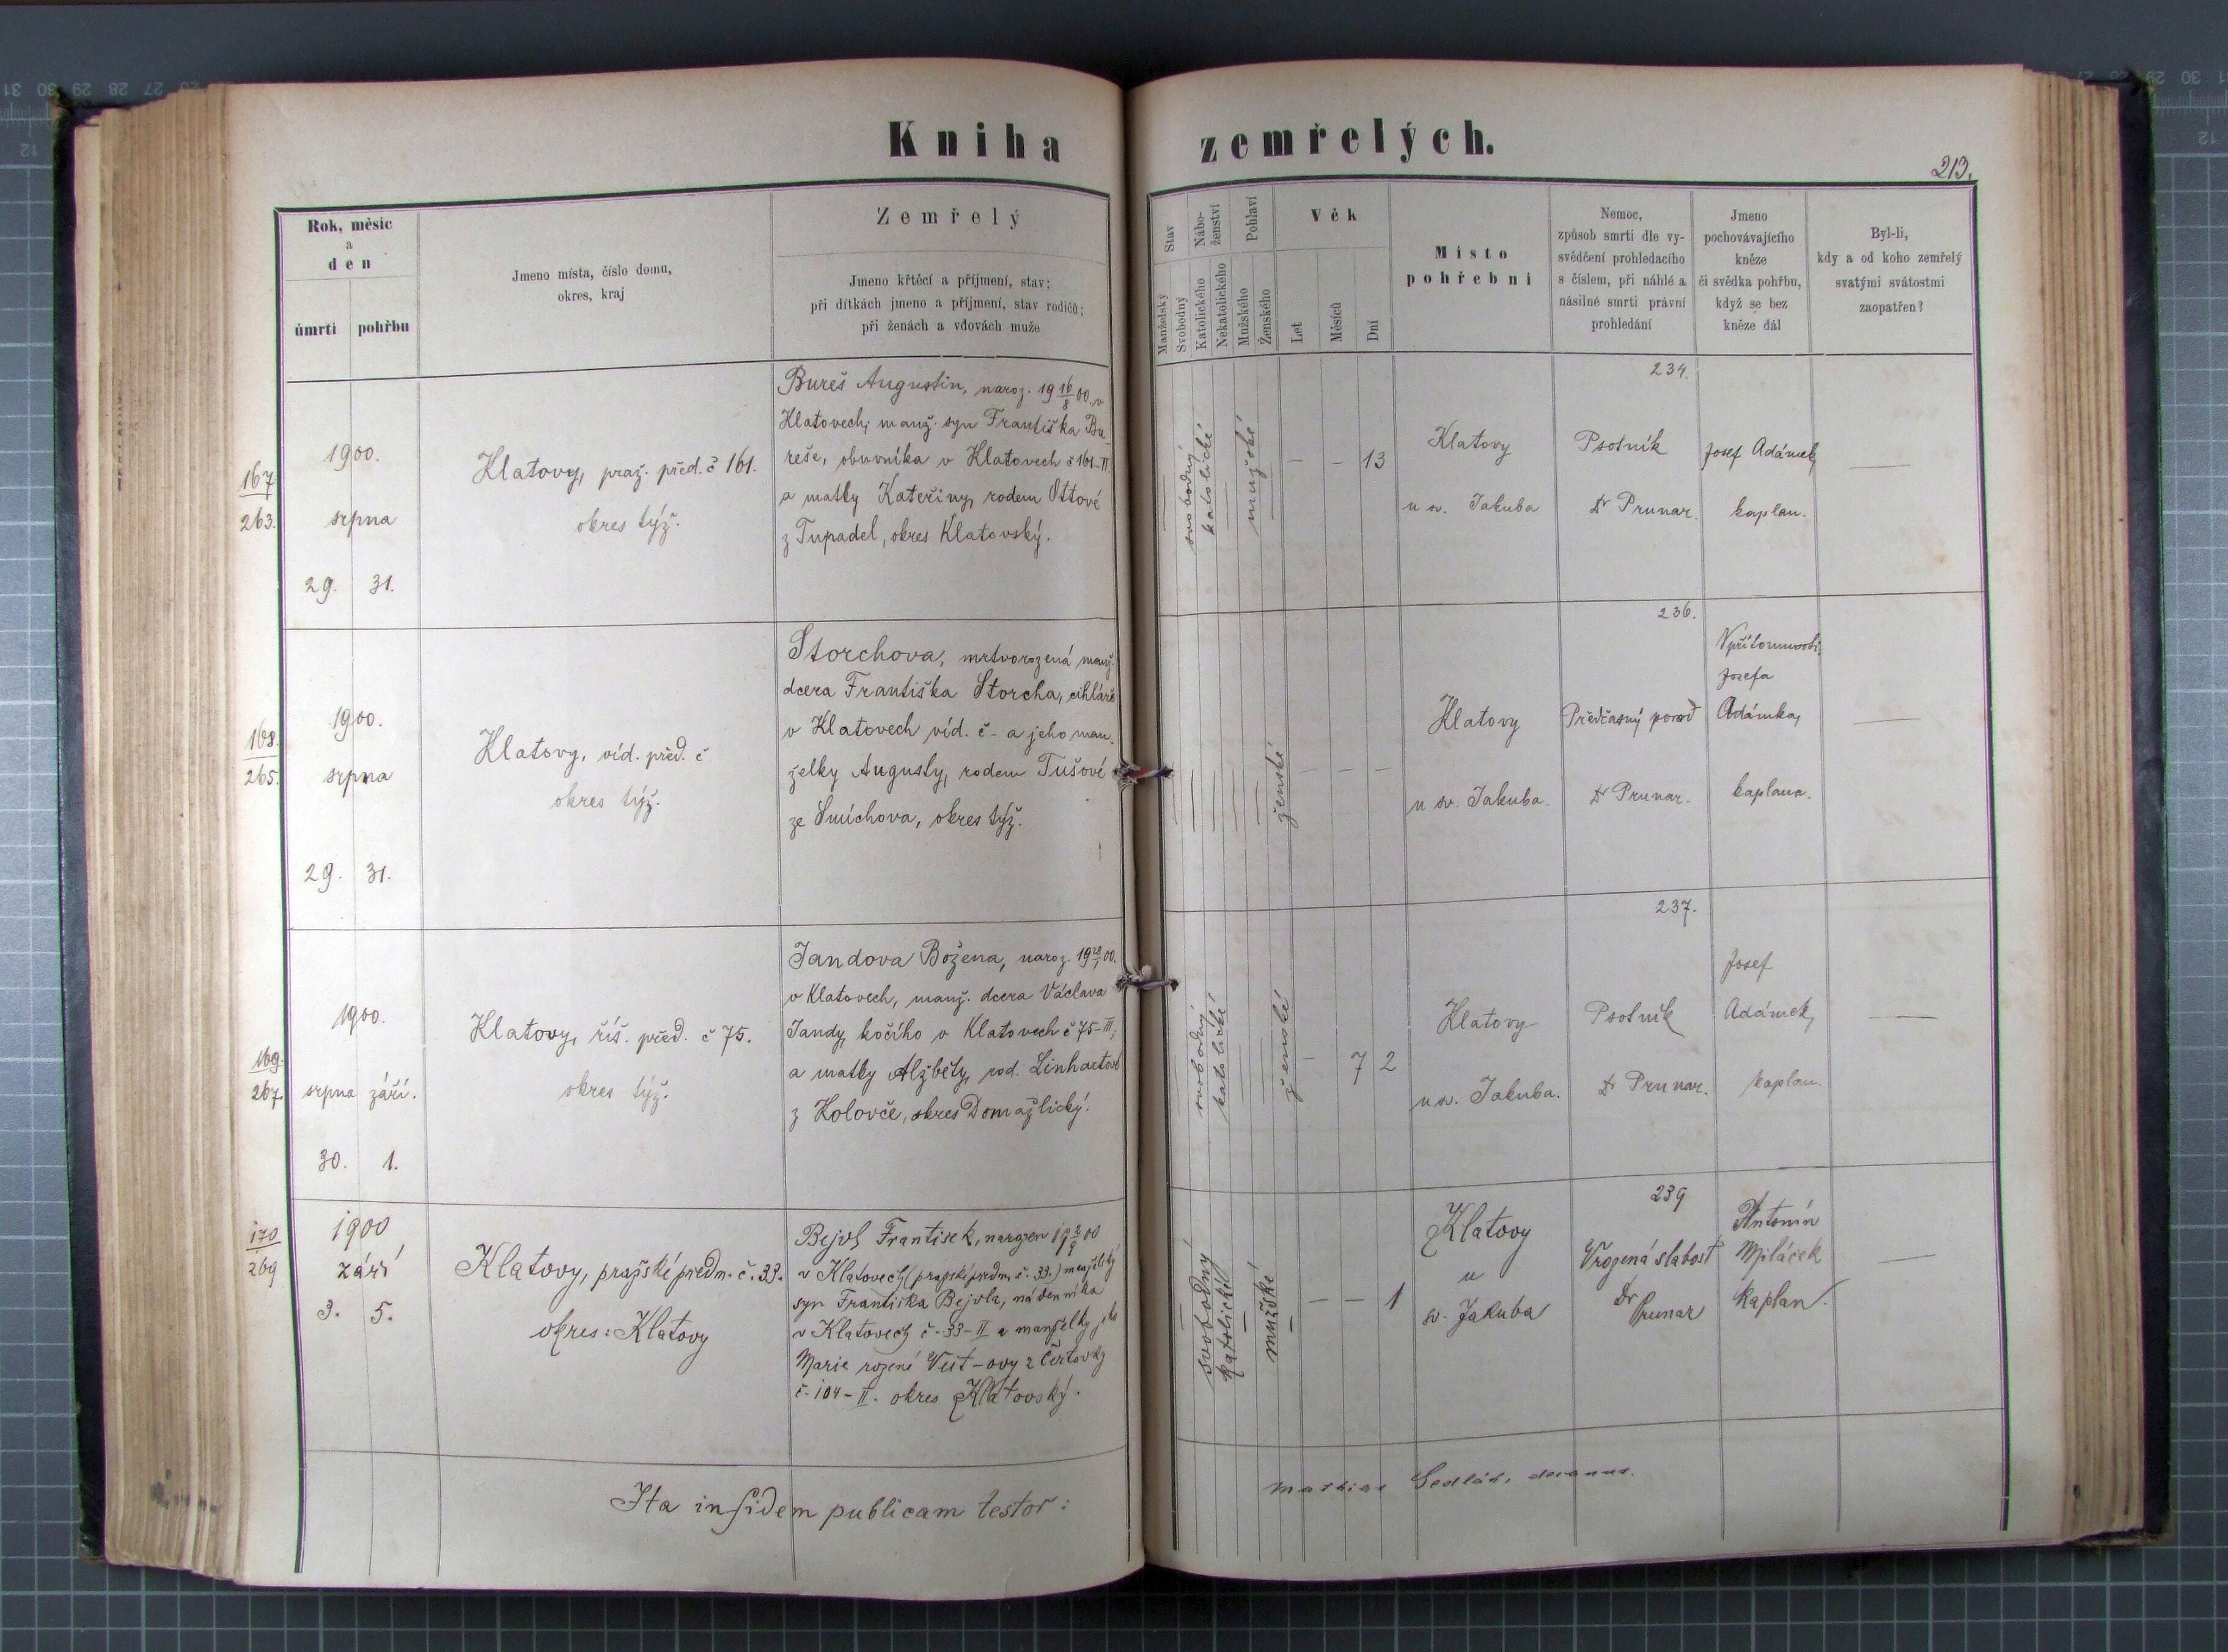 Kniha zemřelých.
213.
Rok, měsíc
a
den
úmrtí pohřbu
Jmeno místa, číslo domu,
okres, kraj
Zemřelý
Jmeno křtěcí a příjmení, stav;
při dítkách jmeno a příjmení, stav rodičů;
při ženách a vdovách muže
Stav
Manželský
Svobodný
Nábo-
ženství
Katolického
Nekatolického
Pohlaví
Mužského
Ženského
Věk
Let
Měsíců
Dní
Místo
pohřební
Nemoc,
způsob smrti dle vy-
svědčení prohledacího
s číslem, při náhlé a
násilné smrti právní
prohledání
Jmeno
pochovávajícího
kněze
či svědka pohřbu,
když se bez
kněze dál
Byl-li,
kdy a od koho zemřelý
svatými svátostmi
zaopatřen?
167
263.
1900.
srpna
29. 31.
Klatovy, praž. před. č 161.
okres týž.
Bureš Augustin, naroz. 19 16/8 00. v
Klatovech, manž. syn Františka Bu-
reše, obuvníka v Klatovech č 161-II.
a matky Kateřiny, rodem Ottové
z Tupadel, okres Klatovský.
svobodný
katolické
mužské
– – 13
Klatovy
u sv. Jakuba
234.
Psotník
Dr Prunar.
Josef Adámek,
kaplan.
—
168.
265.
1900.
srpna
29. 31.
Klatovy, víd. před. č
okres týž.
Storchova, mrtvorozená manž.
dcera Františka Storcha, cihláře
v Klatovech víd. č - a jeho man-
želky Augusty, rodem Tušové
ze Smíchova, okres týž.
ženské
– – –
Klatovy
u sv. Jakuba.
236.
Předčasný porod
Dr Prunar.
V přítomnosti
Josefa
Adámka,
kaplana.
—
169.
267.
1900.
srpna září.
30. 1.
Klatovy, říš. před. č 75.
okres týž.
Jandova Božena, naroz. 19 28/1 00.
v Klatovech, manž. dcera Václava
Jandy, kočího v Klatovech č 75-III,
a matky Alžběty, rod. Linhartové
z Kolovče, okres Domažlický.
svobodný
katolické
ženské
– 7 2
Klatovy
u sv. Jakuba.
237.
Psotník
Dr Prunar.
Josef
Adámek,
kaplan.
—
170
269
1900
září
3. 5.
Klatovy, pražské předm. č. 33.
okres: Klatovy
Bejvl František, narozen 19 2/9 00
v Klatovech (pražské předm. č. 33.) manželský
syn Františka Bejvla, nádenníka
v Klatovech č. 33-II a manželky jeho
Marie rozené Veit-ovy z Čertovky
č. 104-II. okres Klatovský.
svobodný
katolické
mužské
– – 1
Klatovy
u
sv. Jakuba
239
Vrozená slabost
Dr
Prunar
Antonín
Miláček
kaplan.
—
Ita in fidem publicam testor:
Mathias Sedlák, decanus.